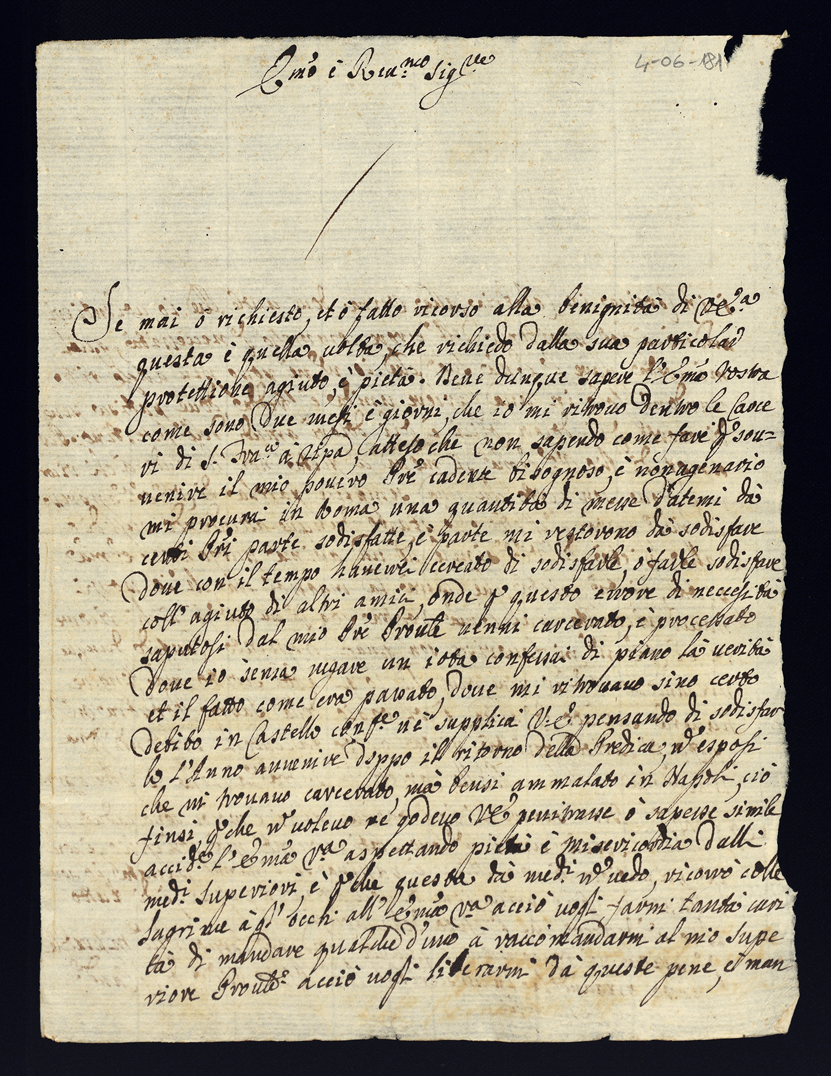 4-06-181
Em̃o è Reu.mo Sig.re
Se mai ò richiesto, et ò fatto ricorso alla benignità di VE.a
questa è quella volta, che richiedo dalla sua particolar
protettione agiuto, è pietà. Bene dunque sapere l'Em̃a Vostra
come sono due mesi è giorni, che io mi ritrovo dentro le Carce
ri di S. Fra.co à Ripa, atteso che non sapendo come fare p sou=
uenire il mio povero Pre cadente bisognoso, è nonagenario
mi procurai in Roma una quantità di messe datemi dà
certi Pri parte sodisfatte, è parte mi restorono dà sodisfare
Dove con il tempo haverei cercato di sodisfarle, ò farle sodisfare
coll'agiuto di altri amici, onde p questo errore di necessità
saputosi dal mio Pre Prov̄le venni carcerato, è processato
Dove io senza negare un iota confessai di piano là verità
et il fatto come era passato, dove mi ritrovavo sino certo
debito in Castello conf.e ne supplicai V.E. pensando di sodisfar
lo l'Anno avvenire doppo il ritorno della Predica, nō esposi
che mi trovavo carcerato, mà bensì ammalato in Napoli, ciò
finsi, p che nō volevo ne godevo VE penitrasse ò sapesse simile
accid.e l'Em̃a V.a aspettando pietà è misericordia dalli
med.i superiori, è p che questa dà med.i nō vedo, ricorro colle
lagrime à gl'occhi all'Em̃a V.a acciò vogli farmi tanta cari
tà di mandare qualched'uno à raccomandarmi al mio supe
riore Prov̄le acciò vogli liberarmi dà queste pene, è man